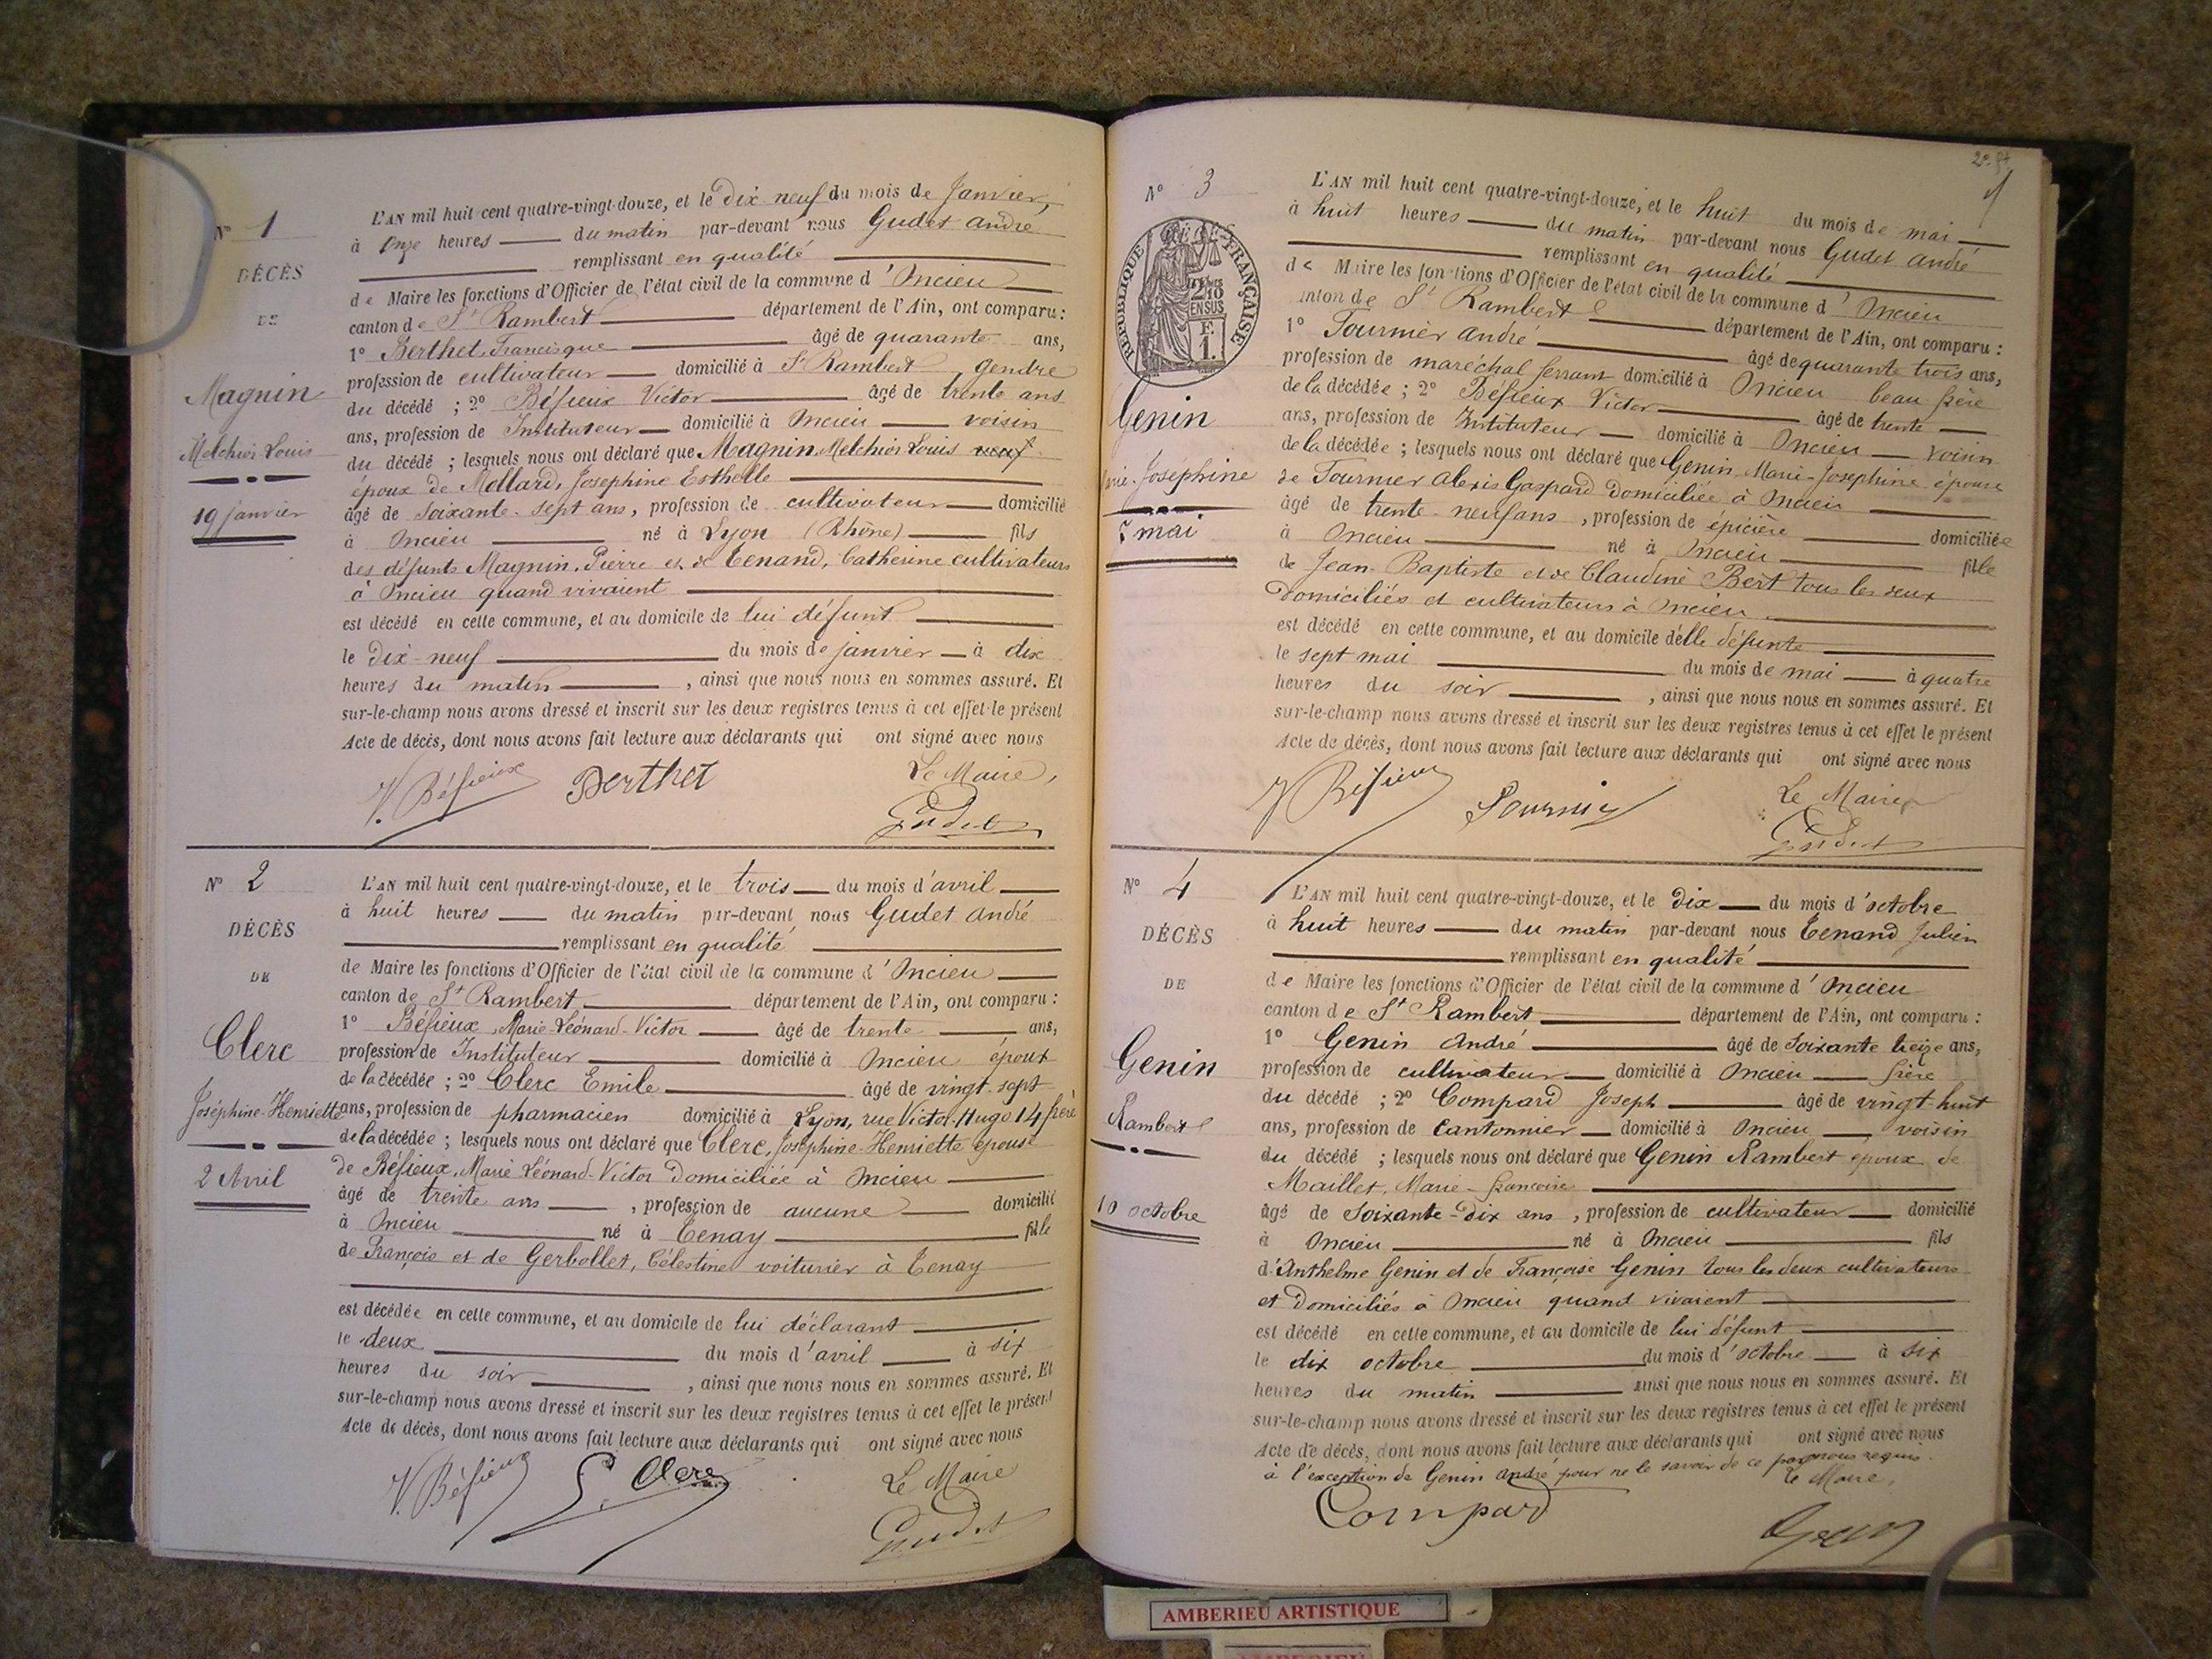 Nº 1
DÉCÈS
DE
Magnin
Melchior Louis
19 janvier
L'AN mil huit cent quatre-vingt-douze, et le dix neuf du mois de Janvier,
à onze heures du matin par-devant nous Gudet André
remplissant en qualité
de Maire les fonctions d'Officier de l'état civil de la commune d'Oncieu
canton de St Rambert département de l'Ain, ont comparu :
1º Berthet Francisque âgé de quarante ans,
profession de cultivateur domicilié à St Rambert gendre
du décédé ; 2º Béfieux Victor âgé de trente ans
ans, profession de Instituteur domicilié à Oncieu voisin
du décédé ; lesquels nous ont déclaré que Magnin Melchior Louis veuf
époux de Mollard, Josephine Esthelle
âgé de soixante-sept ans, profession de cultivateur domicilié
à Oncieu né à Lyon (Rhône) fils
des défunts Magnin, Pierre et de Tenand, Catherine cultivateurs
à Oncieu quand vivaient
est décédé en cette commune, et au domicile de lui défunt
le dix-neuf du mois de janvier à dix
heures du matin, ainsi que nous nous en sommes assuré. Et
sur-le-champ nous avons dressé et inscrit sur les deux registres tenus à cet effet le présent
Acte de décès, dont nous avons fait lecture aux déclarants qui ont signé avec nous
V. Béfieux Berthet Le Maire,
Gudet
Nº 2
DÉCÈS
DE
Clerc
Joséphine-Henriette
2 Avril
L'AN mil huit cent quatre-vingt-douze, et le trois du mois d'avril
à huit heures du matin par-devant nous Gudet André
remplissant en qualité
de Maire les fonctions d'Officier de l'état civil de la commune d'Oncieu
canton de St Rambert département de l'Ain, ont comparu :
1º Béfieux, Marie-Léonard-Victor âgé de trente ans,
profession de Instituteur domicilié à Oncieu époux
de la décédée ; 2º Clerc Emile âgé de vingt-sept
ans, profession de pharmacien domicilié à Lyon, rue Victor-Hugo 14 frère
de la décédée ; lesquels nous ont déclaré que Clerc, Joséphine-Henriette épouse
de Béfieux, Marie Léonard-Victor domiciliée à Oncieu
âgé de trente ans, profession de aucune domicilié
à Oncieu né à Tenay fille
de François et de Gerbollet, Célestine voiturier à Tenay
est décédée en cette commune, et au domicile de lui déclarant
le deux du mois d'avril à six
heures du soir, ainsi que nous nous en sommes assuré. Et
sur-le-champ nous avons dressé et inscrit sur les deux registres tenus à cet effet le présent
Acte de décès, dont nous avons fait lecture aux déclarants qui ont signé avec nous
V. Béfieux Clerc Le Maire
Gudet
Nº 3
RÉPUBLIQUE FRANÇAISE
2/10 EN SUS
F.
1.
Genin
Marie-Josephine
7 mai
L'AN mil huit cent quatre-vingt-douze, et le huit du mois de mai
à huit heures du matin par-devant nous Gudet André
remplissant en qualité
de Maire les fonctions d'Officier de l'état civil de la commune d'Oncieu
canton de St Rambert département de l'Ain, ont comparu :
1º Fournier André âgé de quarante trois ans,
profession de maréchal ferrant domicilié à Oncieu beau frère
de la décédée ; 2º Béfieux Victor âgé de trente
ans, profession de Instituteur domicilié à Oncieu voisin
de la décédée ; lesquels nous ont déclaré que Genin Marie-Josephine épouse
de Fournier Alexis Gaspard domiciliée à Oncieu
âgé de trente-neuf ans, profession de épicière domiciliée
à Oncieu né à Oncieu fille
de Jean-Baptiste et de Claudine Bert tous les deux
domiciliés et cultivateurs à Oncieu
est décédé en cette commune, et au domicile d'elle défunte
le sept mai du mois de mai à quatre
heures du soir, ainsi que nous nous en sommes assuré. Et
sur-le-champ nous avons dressé et inscrit sur les deux registres tenus à cet effet le présent
Acte de décès, dont nous avons fait lecture aux déclarants qui ont signé avec nous
V Béfieux Fournier Le Maire
Gudet
Nº 4
DÉCÈS
DE
Genin
Rambert
10 octobre
L'AN mil huit cent quatre-vingt-douze, et le dix du mois d'octobre
à huit heures du matin par-devant nous Tenand Julien
remplissant en qualité
de Maire les fonctions d'Officier de l'état civil de la commune d'Oncieu
canton de St Rambert département de l'Ain, ont comparu :
1º Genin André âgé de soixante treize ans,
profession de cultivateur domicilié à Oncieu frère
du décédé ; 2º Compard Joseph âgé de vingt-huit
ans, profession de Cantonnier domicilié à Oncieu, voisin
du décédé ; lesquels nous ont déclaré que Genin Rambert époux de
Maillet, Marie-françoise
âgé de soixante-dix ans, profession de cultivateur domicilié
à Oncieu né à Oncieu fils
d'Anthelme Genin et de Françoise Genin tous les deux cultivateurs
et domiciliés à Oncieu quand vivaient
est décédé en cette commune, et au domicile de lui défunt
le dix octobre du mois d'octobre à six
heures du matin ainsi que nous nous en sommes assuré. Et
sur-le-champ nous avons dressé et inscrit sur les deux registres tenus à cet effet le présent
Acte de décès, dont nous avons fait lecture aux déclarants qui ont signé avec nous
à l'exception de Genin André pour ne le savoir de ce par nous requis.
Le Maire,
Compard
AMBERIEU ARTISTIQUE
AMBERIEU